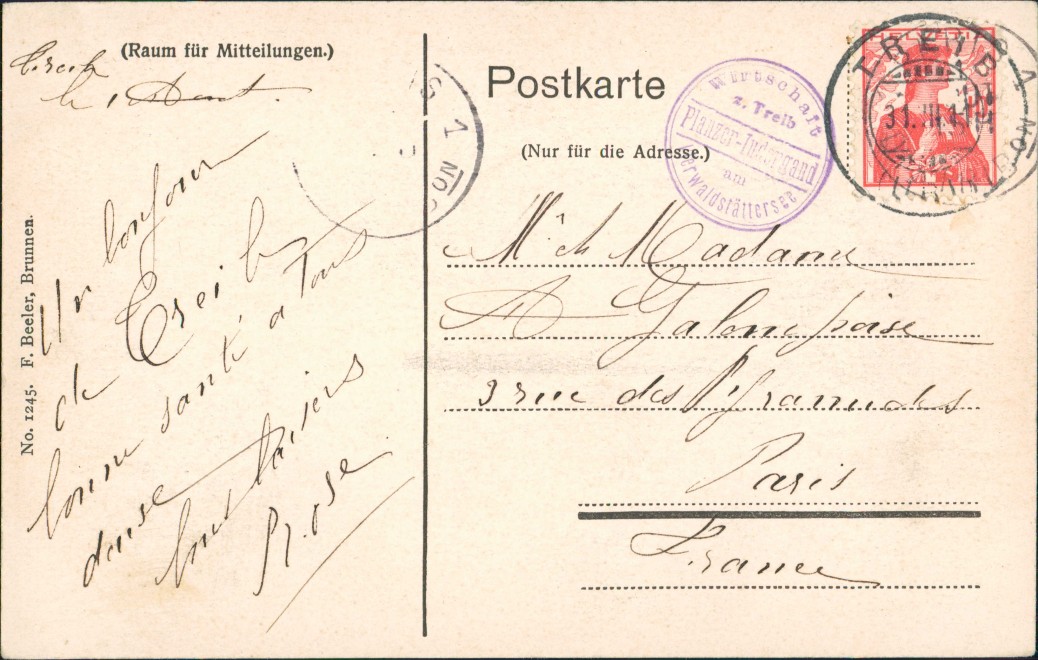 (Raum für Mitteilungen.)
Treib
le 1 Aout.
Un bonjour
de Treib
bonne santé a Tous
baisers
Rose
No. 1245. F. Beeler, Brunnen.
Postkarte
(Nur für die Adresse.)
Wirtschaft
z. Treib
Planzer-Inderg and
am
Vierwaldstättersee
HELVETIA
TREIB
31. III.
M Madame
A Galonpoise
3 rue des Pyramides
Paris
France